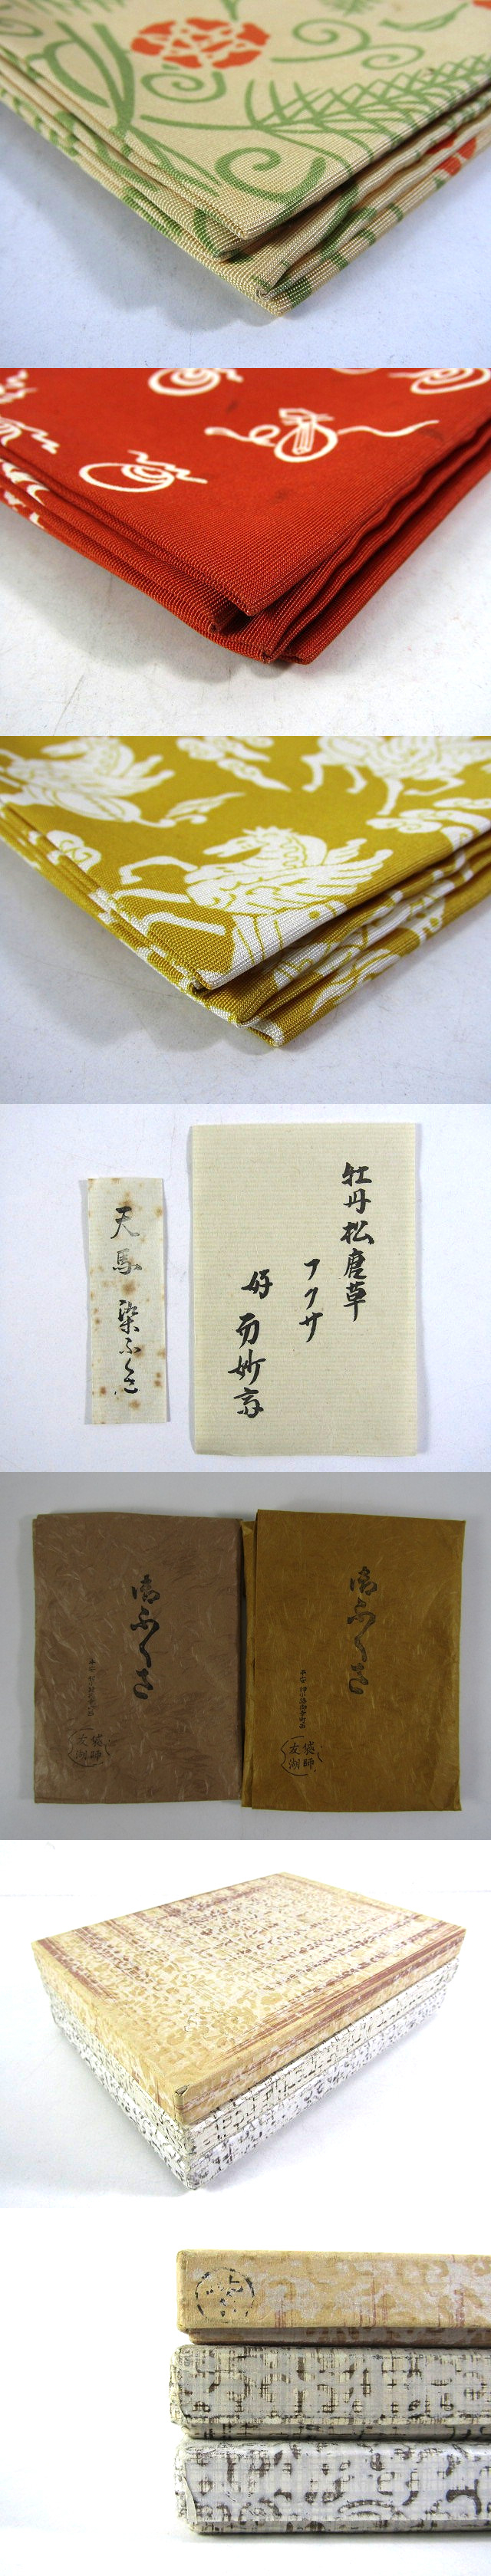 天馬
染ふくさ
牡丹松唐草
フクサ
好 而妙斎
御ふくさ
袋師
友湖
御ふくさ
袋師
友湖